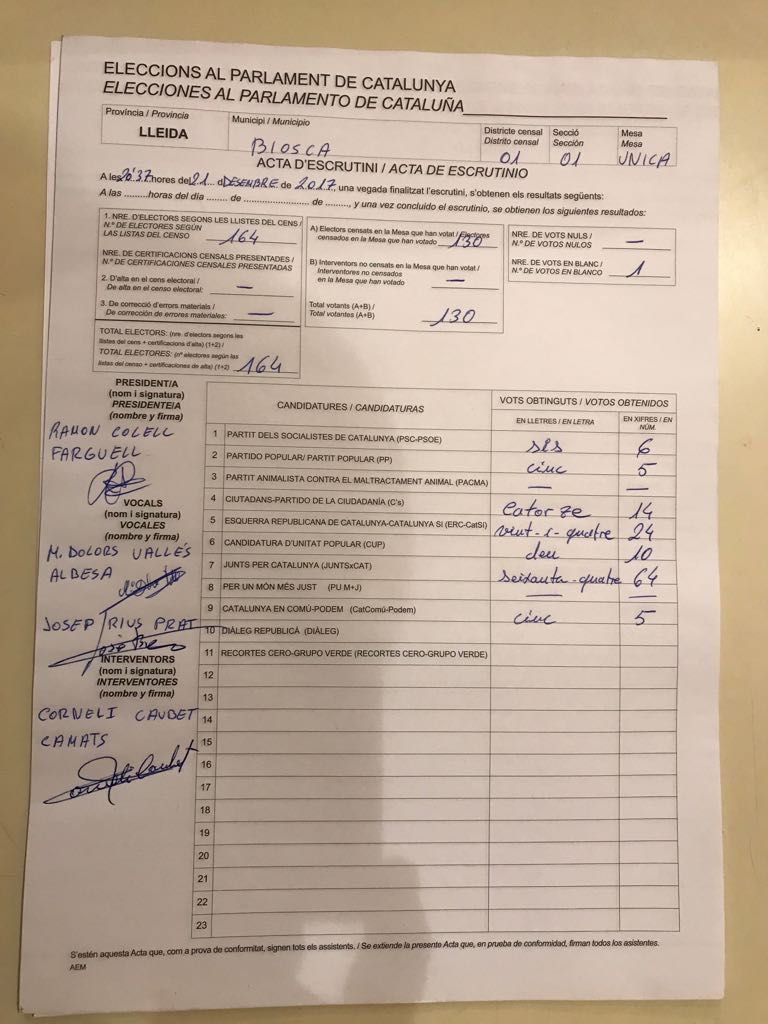 ELECCIONS AL PARLAMENT DE CATALUNYA
ELECCIONES AL PARLAMENTO DE CATALUÑA
Província / Provincia
LLEIDA
Municipi / Municipio
BIOSCA
Districte censal
Distrito censal
01
Secció
Sección
01
Mesa
Mesa
UNICA
ACTA D'ESCRUTINI / ACTA DE ESCRUTINIO
A les 20'37 hores del 21 d DESENBRE de 2017, una vegada finalitzat l'escrutini, s'obtenen els resultats següents:
A las .........horas del día ....... de ........................ de ........, y una vez concluido el escrutinio, se obtienen los siguientes resultados:
1. NRE. D'ELECTORS SEGONS LES LLISTES DEL CENS /
N.º DE ELECTORES SEGÚN
LAS LISTAS DEL CENSO 164
NRE. DE CERTIFICACIONS CENSALS PRESENTADES /
N.º DE CERTIFICACIONES CENSALES PRESENTADAS
2. D'alta en el cens electoral /
De alta en el censo electoral: —
3. De correcció d'errors materials /
De corrección de errores materiales: —
TOTAL ELECTORS: (nre. d'electors segons les
llistes del cens + certificacions d'alta) (1+2) /
TOTAL ELECTORES: (nº electores según las
listas del censo + certificaciones de alta) (1+2) 164
A) Electors censats en la Mesa que han votat / Electores
censados en la Mesa que han votado 130
B) Interventors no censats en la Mesa que han votat /
Interventores no censados
en la Mesa que han votado —
Total votants (A+B) /
Total votantes (A+B) 130
NRE. DE VOTS NULS /
N.º DE VOTOS NULOS —
NRE. DE VOTS EN BLANC /
N.º DE VOTOS EN BLANCO 1
PRESIDENT/A
(nom i signatura)
PRESIDENTE/A
(nombre y firma)
RAMON COLELL
FARGUELL
VOCALS
(nom i signatura)
VOCALES
(nombre y firma)
M. DOLORS VALLÉS
ALBESA
JOSEP TRIUS PRAT
INTERVENTORS
(nom i signatura)
INTERVENTORES
(nombre y firma)
CORNELI CAUDET
CAMATS
CANDIDATURES / CANDIDATURAS
VOTS OBTINGUTS / VOTOS OBTENIDOS
EN LLETRES / EN LETRA
EN XIFRES / EN NÚM.
1 PARTIT DELS SOCIALISTES DE CATALUNYA (PSC-PSOE) sis 6
2 PARTIDO POPULAR/ PARTIT POPULAR (PP) cinc 5
3 PARTIT ANIMALISTA CONTRA EL MALTRACTAMENT ANIMAL (PACMA) — —
4 CIUTADANS-PARTIDO DE LA CIUDADANÍA (C's) Catorze 14
5 ESQUERRA REPUBLICANA DE CATALUNYA-CATALUNYA SÍ (ERC-CatSí) vint-i-quatre 24
6 CANDIDATURA D'UNITAT POPULAR (CUP) deu 10
7 JUNTS PER CATALUNYA (JUNTSxCAT) seixanta-quatre 64
8 PER UN MÓN MÉS JUST (PU M+J) — —
9 CATALUNYA EN COMÚ-PODEM (CatComú-Podem) cinc 5
10 DIÀLEG REPUBLICÀ (DIÀLEG)
11 RECORTES CERO-GRUPO VERDE (RECORTES CERO-GRUPO VERDE)
12
13
14
15
16
17
18
19
20
21
22
23
S'estén aquesta Acta que, com a prova de conformitat, signen tots els assistents. / Se extiende la presente Acta que, en prueba de conformidad, firman todos los asistentes.
AEM